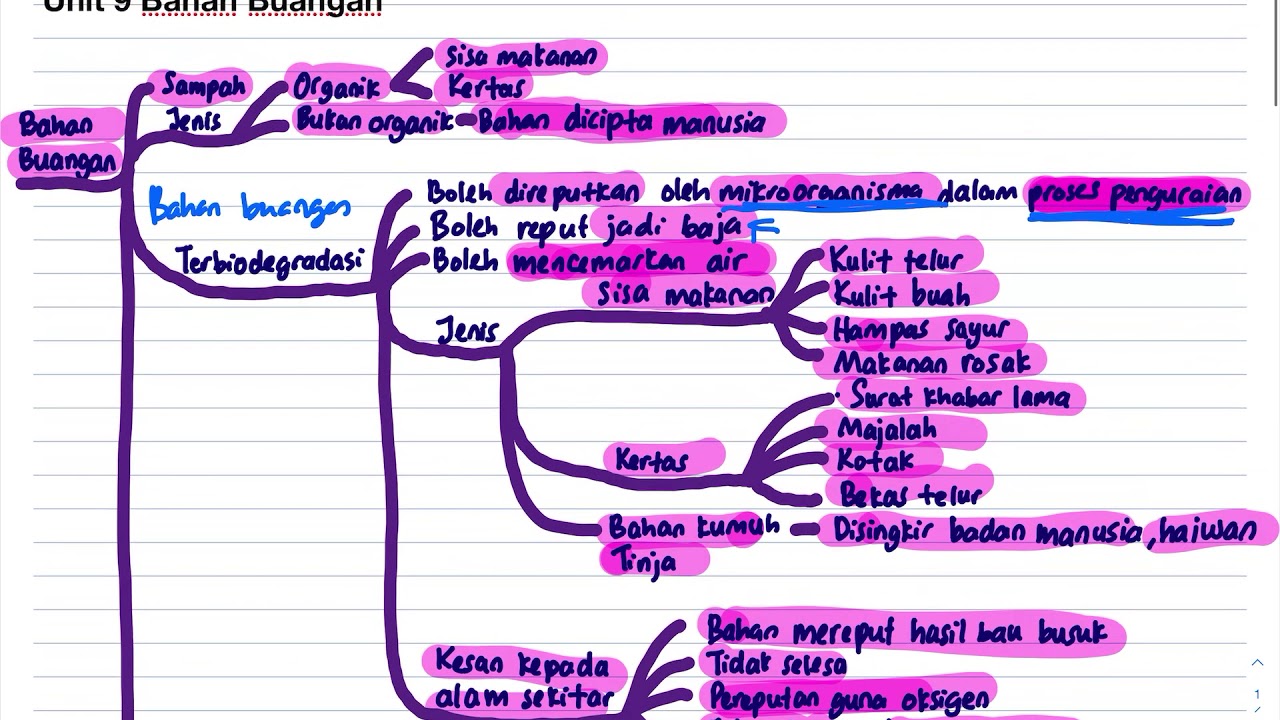 Unit 9 Bahan Buangan
Sampah
Organik
Sisa makanan
Kertas
Bahan
Buangan
Jenis
Bukan organik
Bahan dicipta manusia
Bahan buangan
Terbiodegradasi
Boleh direputkan oleh mikroorganisma dalam proses penguraian
Boleh reput jadi baja
Boleh mencemarkan air
Jenis
Sisa makanan
Kulit telur
Kulit buah
Hampas sayur
Makanan rosak
Kertas
Surat khabar lama
Majalah
Kotak
Bekas telur
Bahan kumuh
Tinja
Disingkir badan manusia, haiwan
Kesan kepada
alam sekitar
Bahan mereput hasil bau busuk
Tidak selesa
Pereputan guna oksigen
1